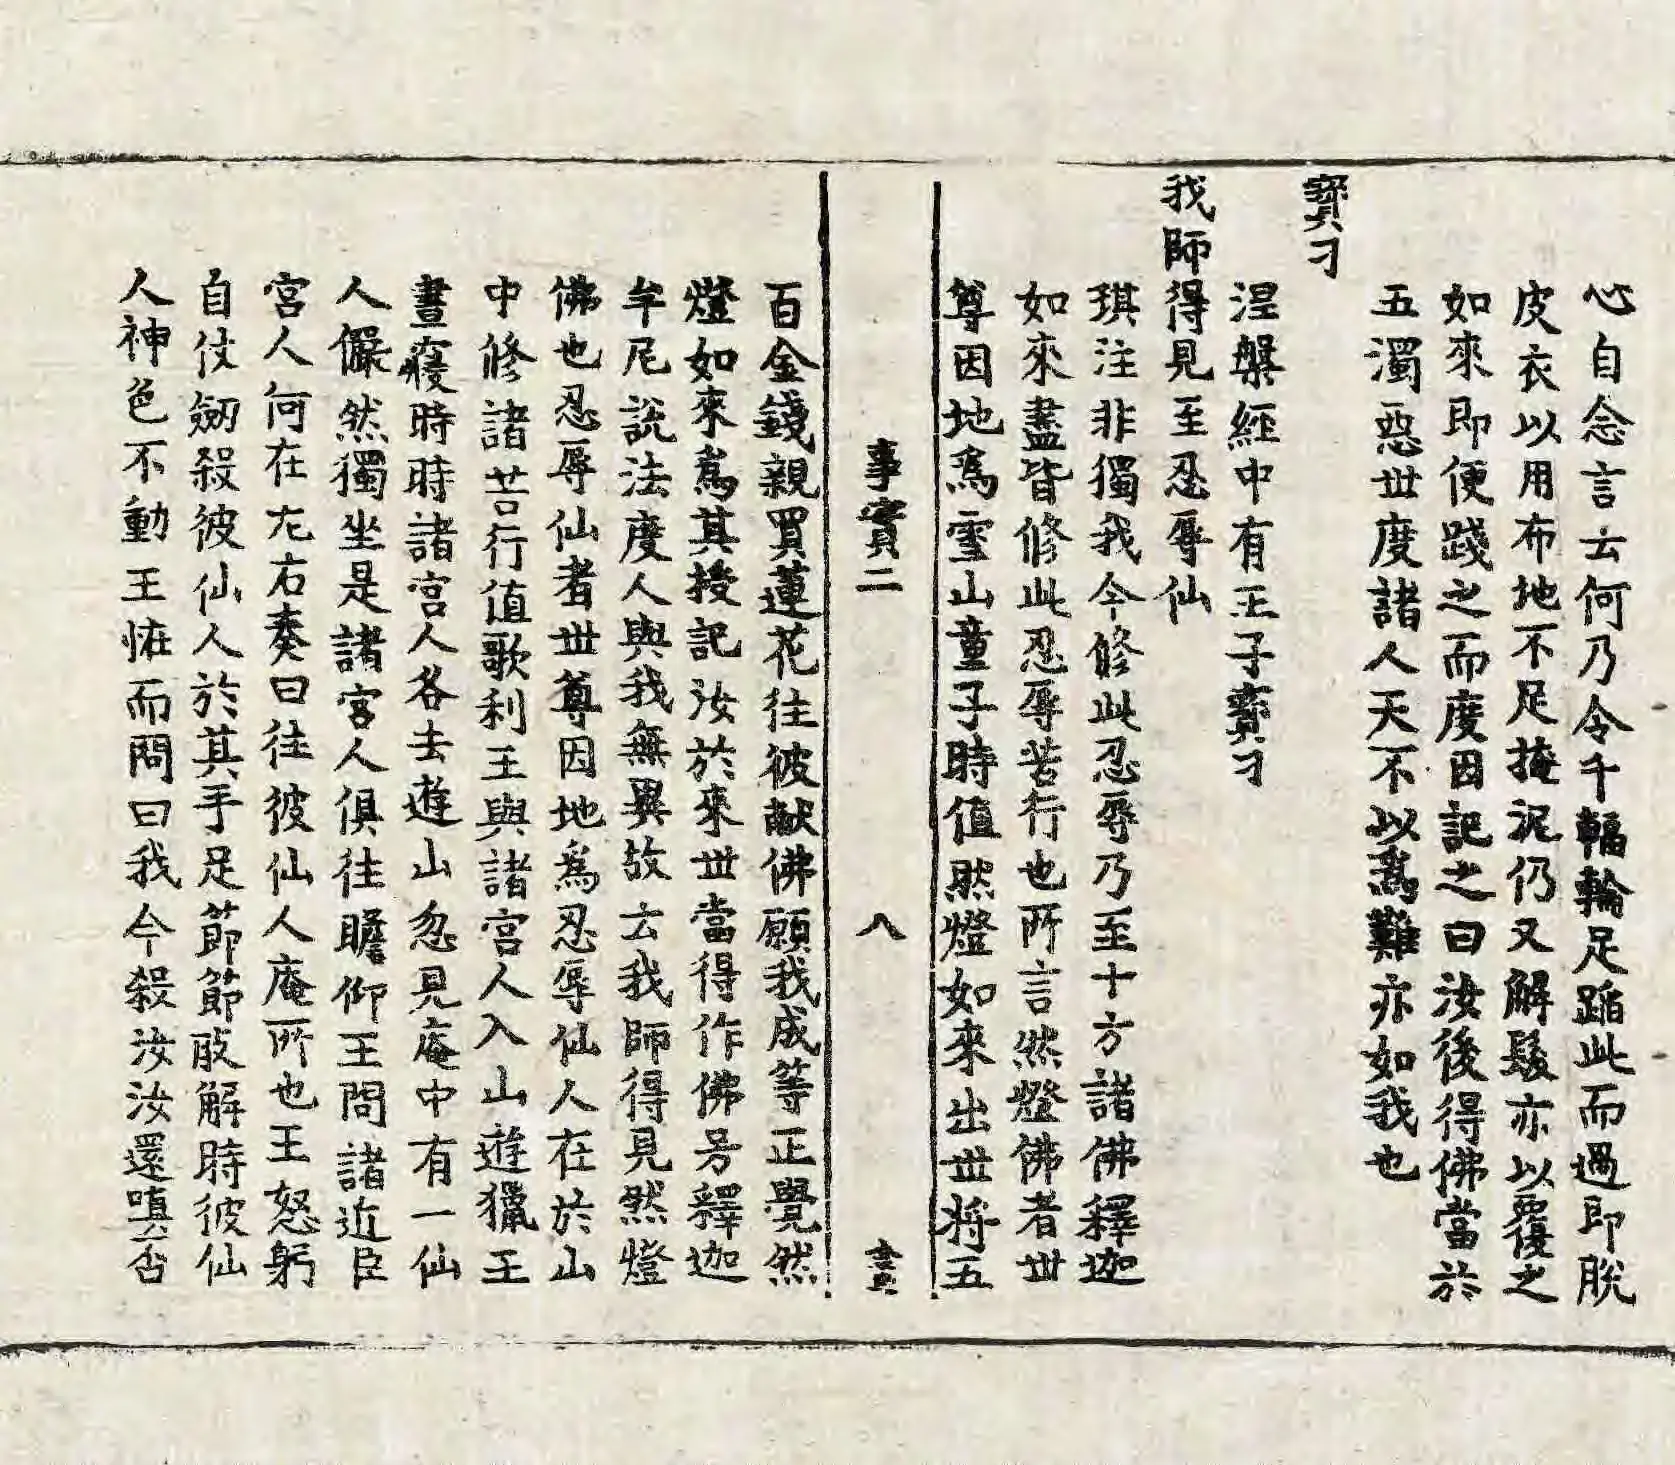 心自念言云何乃令千輻輪足蹈此而過即脫
皮衣以用布地不足掩泥仍又解髮亦以覆之
如來即便踐之而度因記之曰汝後得佛當於
五濁惡世度諸人天不以爲難亦如我也
寶刁
涅槃經中有王子寶刁
我師得見至忍辱仙
琪注非獨我今修此忍辱乃至十方諸佛釋迦
如來盡皆修此忍辱苦行也所言然燈佛者世
尊因地爲雪山童子時值然燈如來出世將五
事實二
八
百金錢親買蓮花往彼献佛願我成等正覺然
燈如來爲其授記汝於來世當得作佛号釋迦
牟尼說法度人與我無異故云我師得見然燈
佛也忍辱仙者世尊因地爲忍辱仙人在於山
中修諸苦行值歌利王與諸宮人入山遊獵王
晝寢時時諸宮人各去遊山忽見庵中有一仙
人儼然獨坐是諸宮人俱往瞻仰王問諸近臣
宮人何在左右奏曰往彼仙人庵所也王怒躬
自仗劒殺彼仙人於其手足節節肢解時彼仙
人神色不動王恠而問曰我今殺汝汝還嗔否